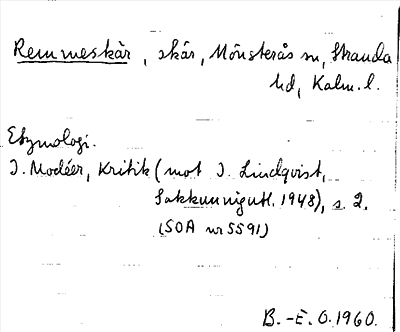 Remmeskär, skär, Mönsterås sn, Stranda
hd, Kalm. l.
Etymologi.
I. Modéer, Kritik (mot I. Lindqvist,
Sakkunnigutl. 1948), s. 2.
(SOA nr 5591)
B.-E. O. 1960.